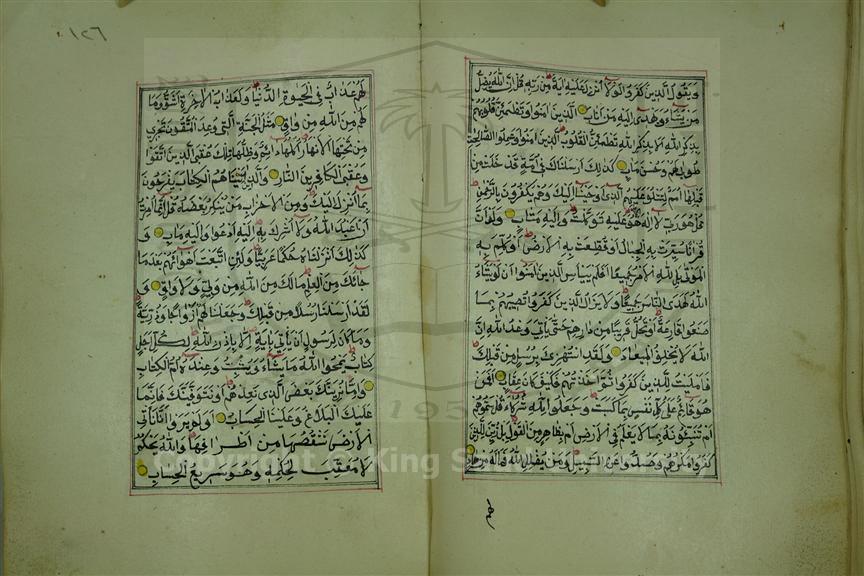 ١٢٦
ويقول الذين كفروا لولا انزل عليه اية من ربه قل ان الله يضل
من يشاء ويهدى اليه من اناب الذين امنوا وتطمئن قلوبهم
بذكر الله الا بذكر الله تطمئن القلوب الذين امنوا وعملوا الصالحات
طوبى لهم وحسن ماب كذلك ارسلناك فى امة قد خلت من
قبلها امم لتتلو عليهم الذى اوحينا اليك وهم يكفرون بالرحمن
قل هو ربى لا اله الا هو عليه توكلت واليه متاب ولو ان
قرانا سيرت به الجبال او قطعت به الارض او كلم به
الموتى بل لله الامر جميعا افلم ييأس الذين امنوا ان لو يشاء
الله لهدى الناس جميعا ولا يزال الذين كفروا تصيبهم بما
صنعوا قارعة او تحل قريبا من دارهم حتى يأتى وعد الله ان
الله لا يخلف الميعاد ولقد استهزئ برسل من قبلك
فامليت للذين كفروا ثم اخذتهم فكيف كان عقاب افمن
هو قائم على كل نفس بما كسبت وجعلوا لله شركاء قل سموهم
ام تنبئونه بما لا يعلم فى الارض ام بظاهر من القول بل زين للذين
كفروا مكرهم وصدوا عن السبيل ومن يضلل الله فماله من هاد
لهم
لهم عذاب فى الحيوة الدنيا ولعذاب الاخرة اشق وما
لهم من الله من واق مثل الجنة التى وعد المتقون تجرى
من تحتها الانهار اكلها دائم وظلها تلك عقبى الذين اتقوا
وعقبى الكافرين النار والذين اتيناهم الكتاب يفرحون
بما انزل اليك ومن الاحزاب من ينكر بعضه قل انما امرت
ان اعبد الله ولا اشرك به اليه ادعوا واليه ماب و
كذلك انزلناه حكما عربيا ولئن اتبعت اهوائهم بعد ما
جائك من العلم مالك من الله من ولى ولا واق و
لقد ارسلنا رسلا من قبلك وجعلنا لهم ازواجا وذرية
وما كان لرسول ان يأتى باية الا باذن الله لكل اجل
كتاب يمحوا الله ما يشاء ويثبت وعنده ام الكتاب
واما نرينك بعض الذى نعدهم او نتوفينك فانما
عليك البلاغ وعلينا الحساب اولم يروا انا نأتى
الارض ننقصها من اطرافها والله يحكم
لا معقب لحكمه وهو سريع الحساب
Copyright © King Saud University
1957